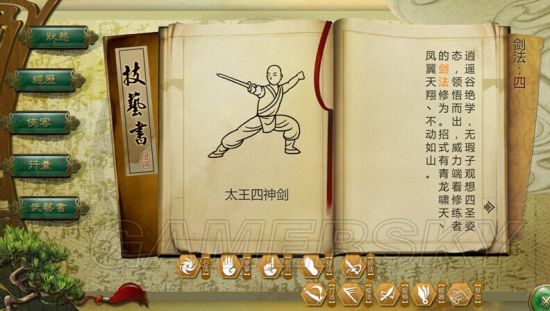 狀態
經歷
俠客
行囊
武藝書
技藝書
太王四神剑
剑法·四
逍遥谷绝学,无瑕子观想四圣姿
态,领悟而出,威力端看修练者
的剑法修为。招式有青龙啸天、
凤翼天翔、不动如山。
GAMERSKY